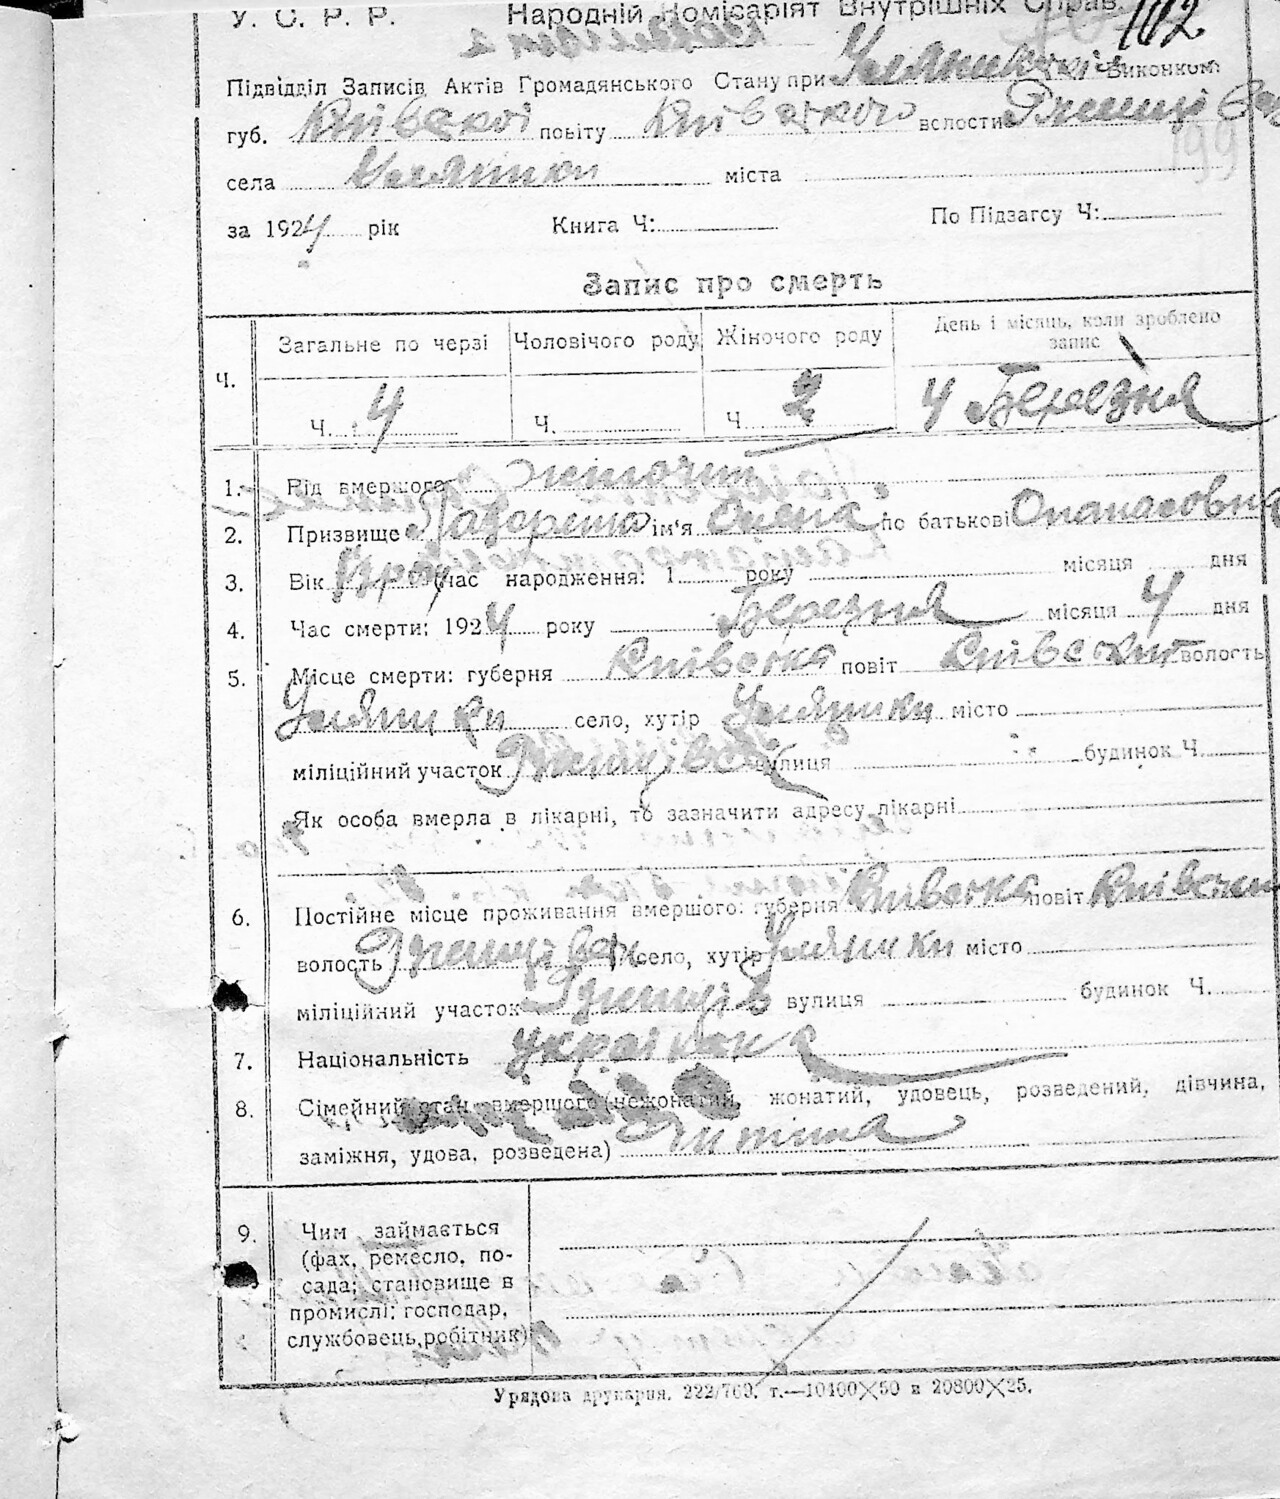 У. С. Р. Р. Народній Комісаріят Внутрішніх Справ. 102
Підвідділ Записів Актів Громадянського Стану при Виконкомі
199
губ. Київської повіту Київського волости
села Уляники міста
за 1924 рік Книга Ч: По Підзагсу Ч:
Запис про смерть
Загальне по черзі Чоловічого роду Жіночого роду День і місяць, коли зроблено запис
Ч. Ч. 4 Ч. Ч 2 4 Березня
1. Рід вмершого жіночий
2. Призвище ім'я Олена по батькові Опанасовна
3. Вік час народження: 1 року місяця дня
4. Час смерти: 1924 року Березня місяця 4 дня
5. Місце смерти: губерня Київська повіт Київский волость
Уляники село, хутір Уляники місто
міліційний участок вулиця будинок Ч.
Як особа вмерла в лікарні, то зазначити адресу лікарні
6. Постійне місце проживання вмершого: губерня Київська повіт Київский
волость село, хутір Уляники місто
міліційний участок Ржищів вулиця будинок Ч.
7. Національність українка
8. Сімейний стан вмершого (нежонатий, жонатий, удовець, розведений, дівчина,
заміжня, удова, розведена) Дитина
9. Чим займається
(фах, ремесло, по-
сада; становище в
промислі: господар,
службовець, робітник)
Урядова друкарня. 222/760. т.—10400×50 и 20800×25.